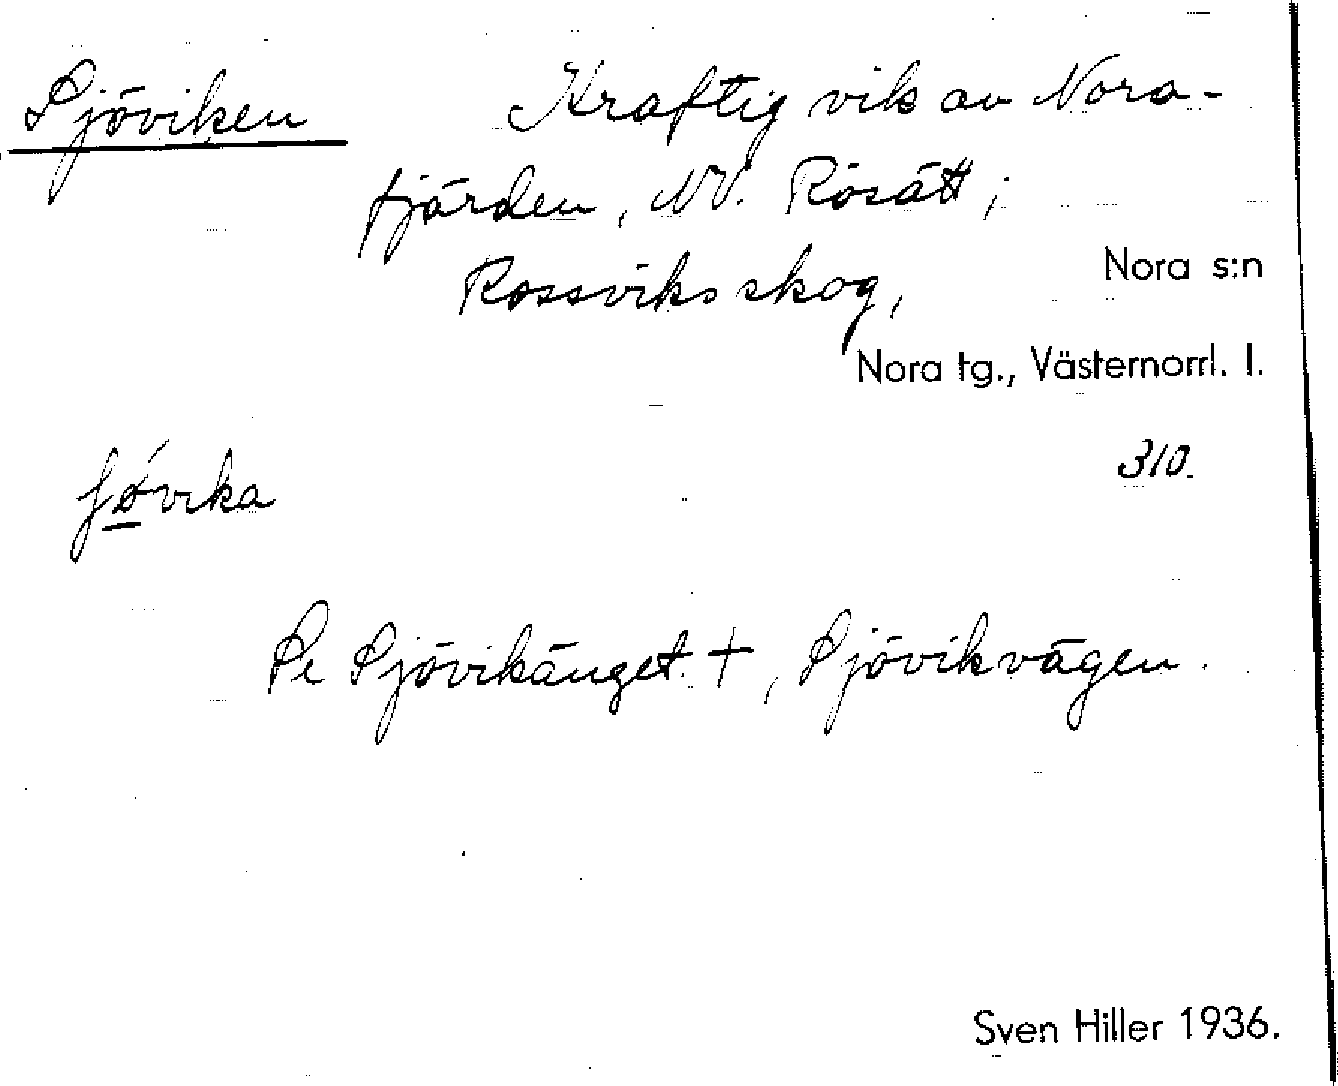 Sjöviken Kraftig vik av Nora-
fjärden, NV. Rösätt;
Rossviks skog,
Nora s:n
Nora tg., Västernorrl. l.
310.
ʃö́vika
Se Sjövikänget +, Sjövikvägen.
Sven Hiller 1936.